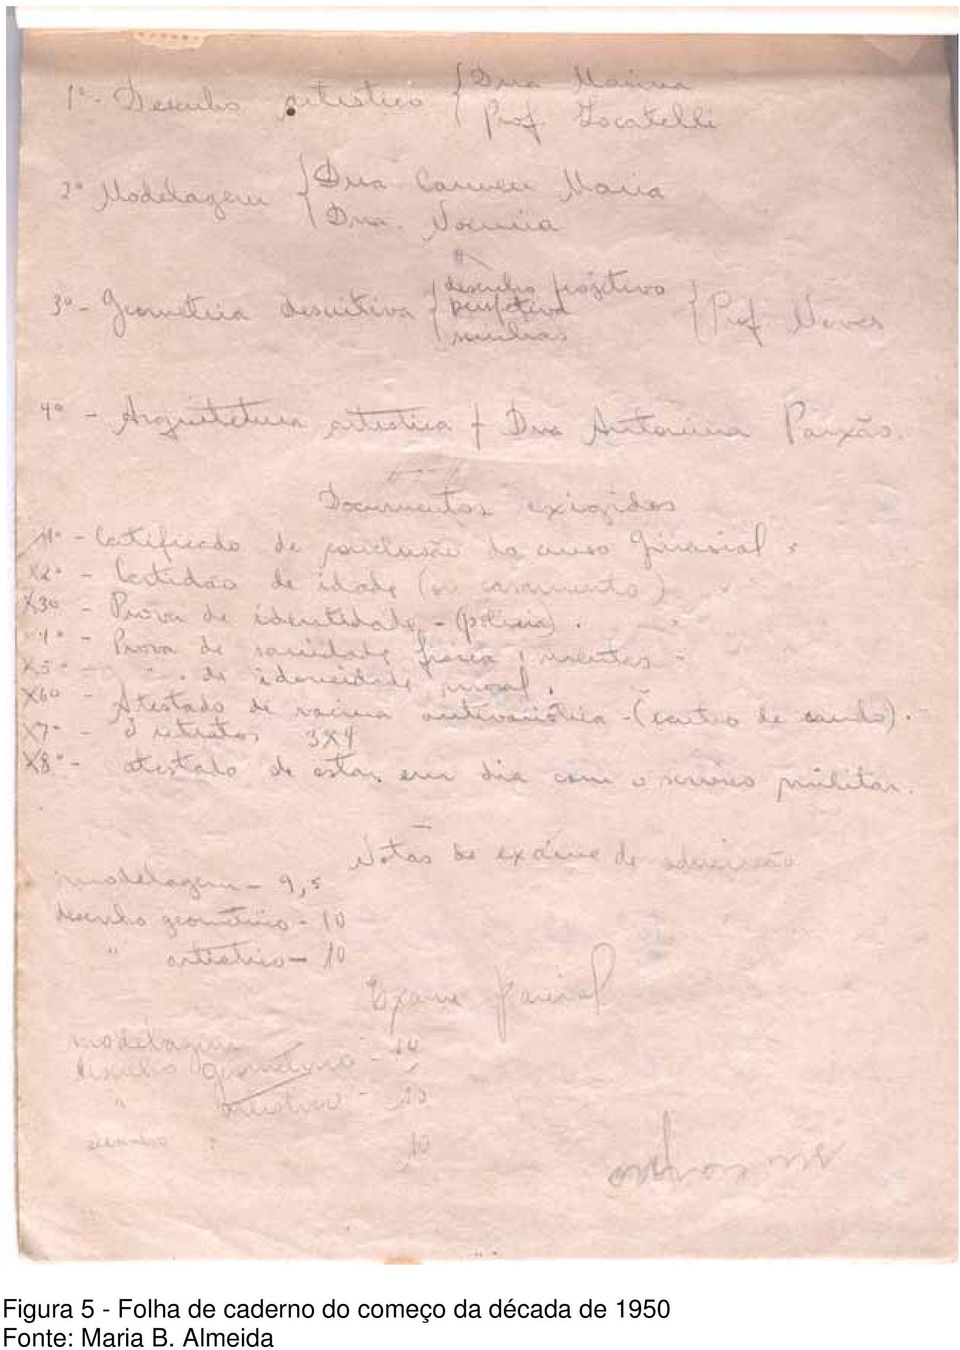 1º - Desenho artistico { Dna Marina
Prof. Locatelli
2º Modelagem { Dna Carmem Maria
Dna.
3º - Geometria descritiva { desenho projetivo
perspetiva
sombras } Prof Neves
4º - Arquitetura artistica { Dna Antonina Paixão.
Documentos exigidos
1º - Certificado de conclusão do curso ginasial.
X2º - Certidão de idade (ou casamento)
X3º - Prova de identidade - (policia).
4º - Prova de sanidade fisica e mental -
X5º - " . de idoneidade moral.
X6º - Atestado de vacina antivariólica - (centro de saude).
X7º - 3 retratos 3X4
X8º - atestado de estar em dia com o serviço militar.
Notas de exame de admissão
modelagem - 9,5
desenho geometrico - 10
" artistico - 10
Exame Parcial
modelagem
desenho geometrico -
" artistico - 10
10
Figura 5 - Folha de caderno do começo da década de 1950
Fonte: Maria B. Almeida